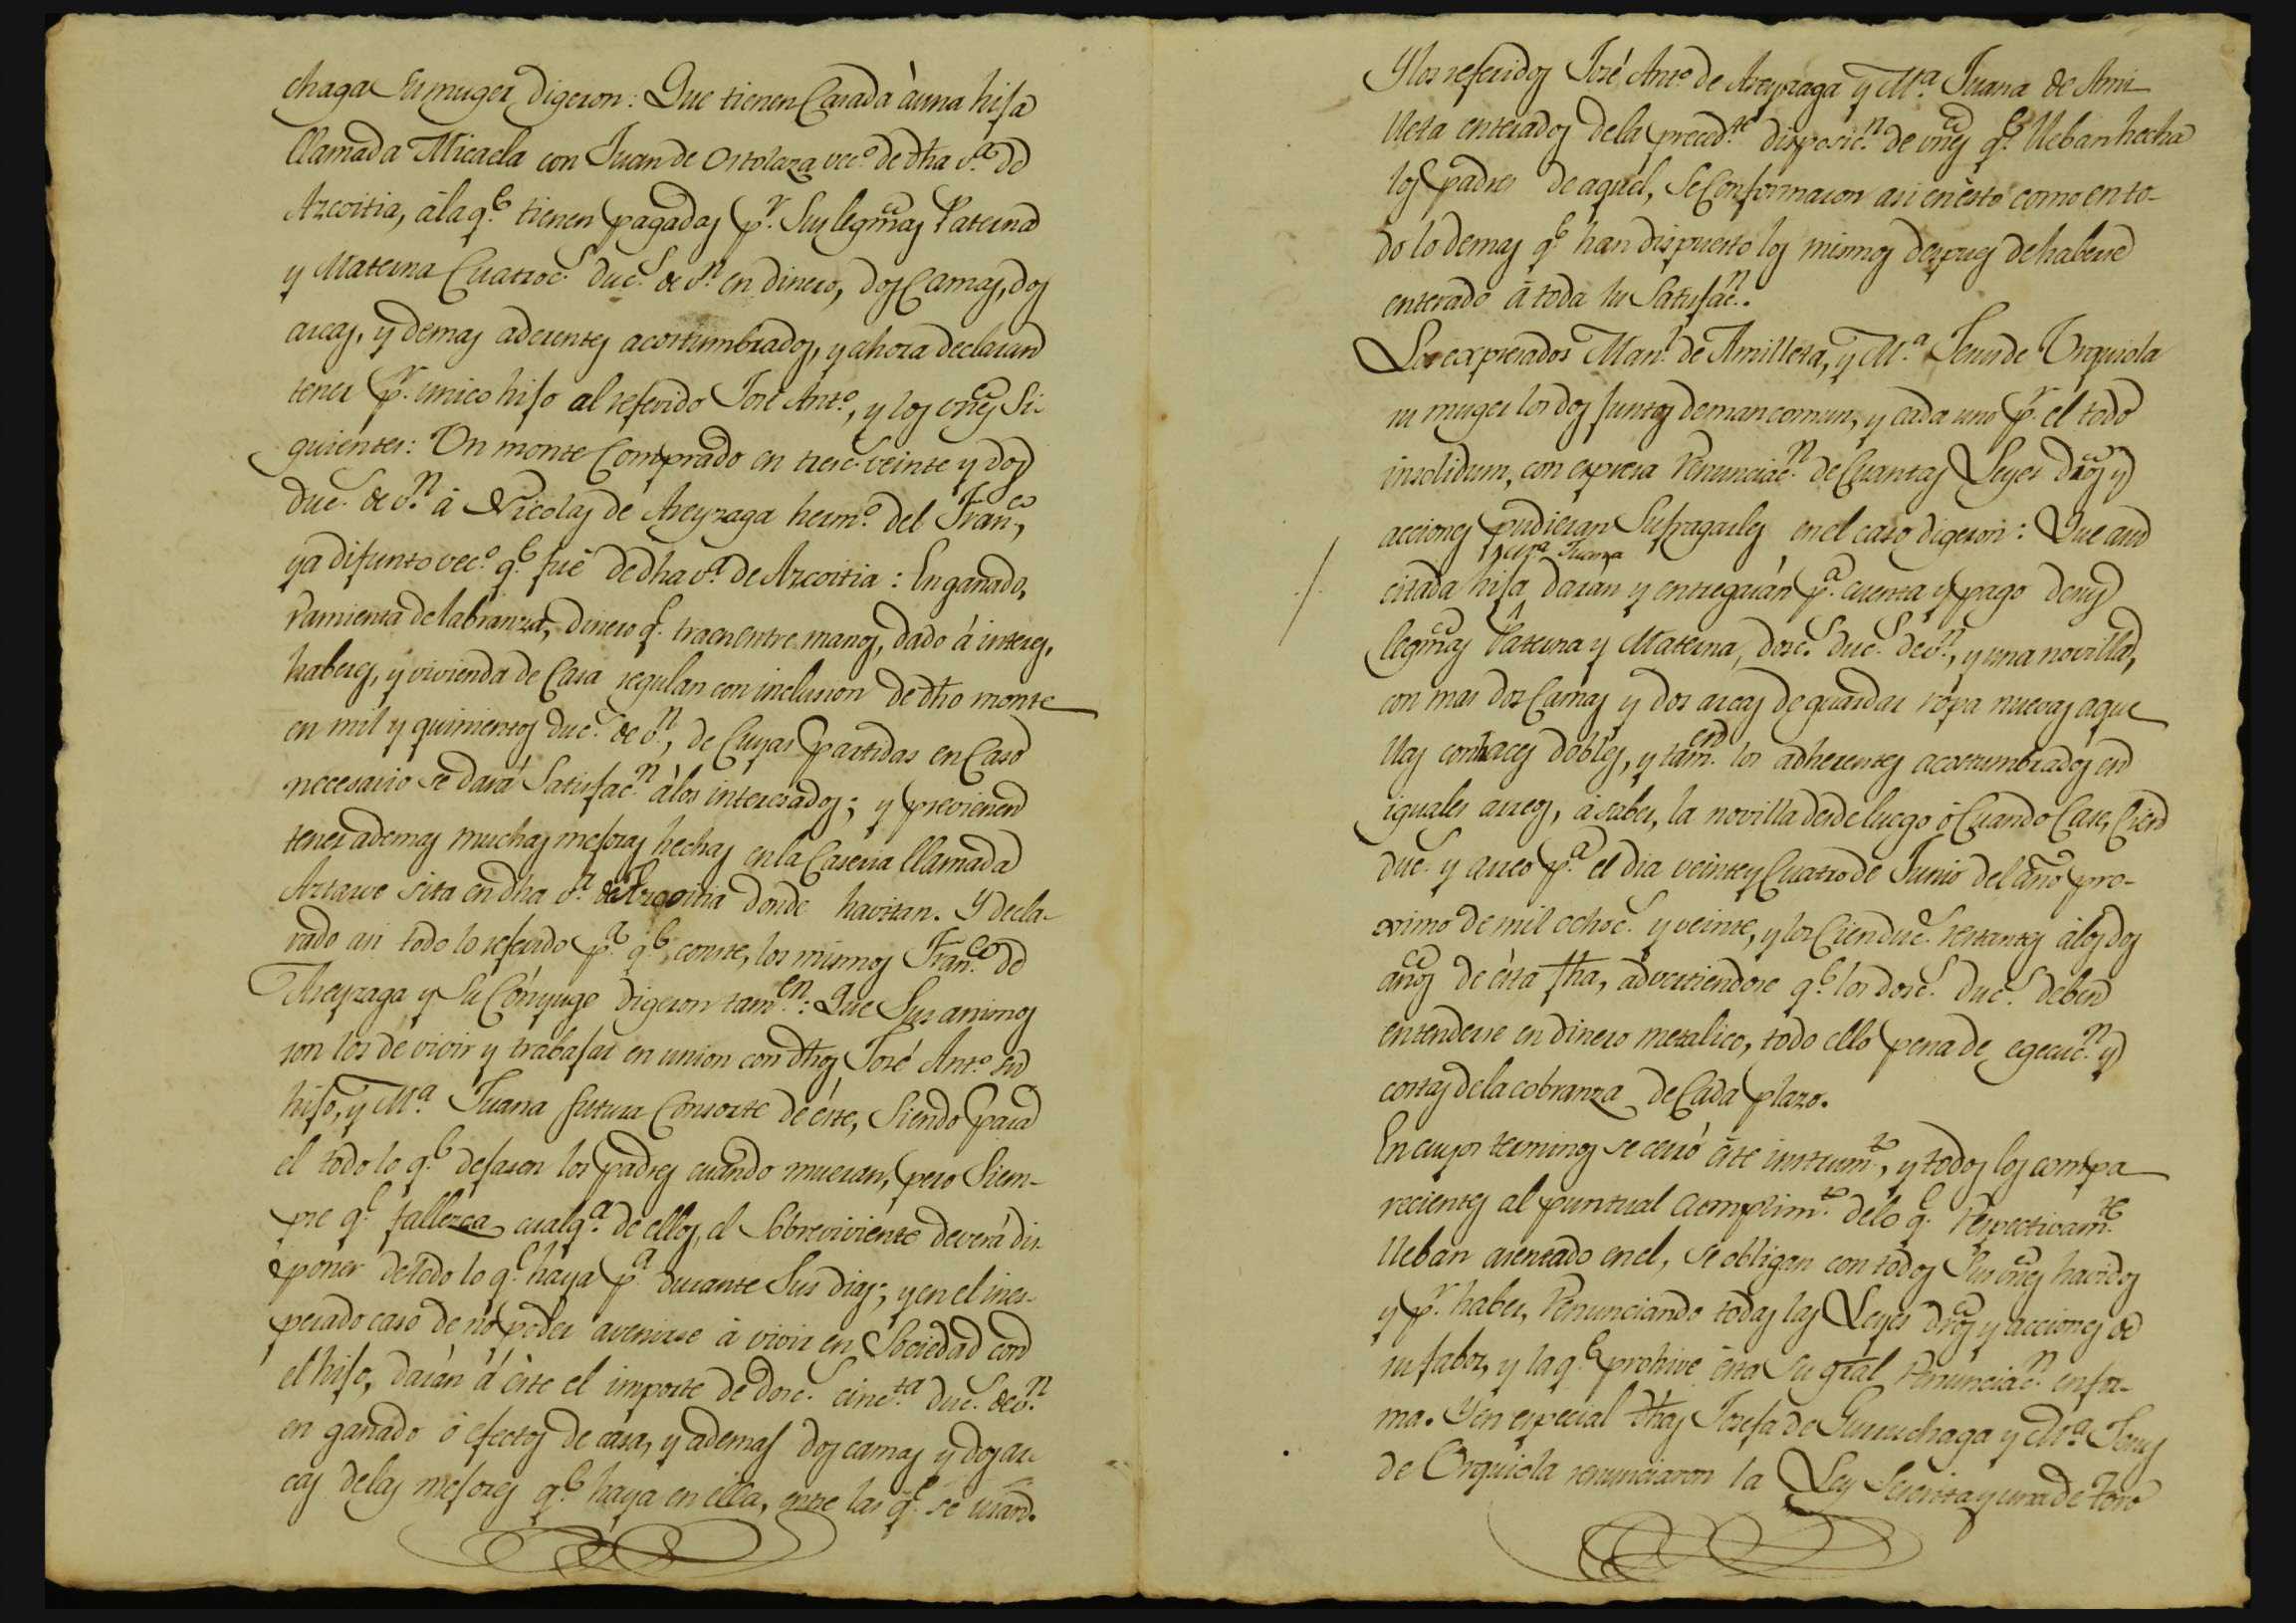 chaga su muger, digeron: Que tienen Casada à una hija
llamada Micaela con Juan de Ostolaza vec.º de dha v.ª de
Azcoitia, à la q.e tienen pagadas p.r sus legmas Paterna
y Materna Cuatroc.s duc.s de v.n en dinero, dos Camas, dos
arcas, y demas aderentes acostumbrados, y ahora declaran
tener p.r unico hijo al referido José Ant.º, y los vnes Si-
guientes: Un monte Comprado en tresc.s veinte y dos
duc.s de v.n à Nicolas de Areyzaga herm.º del Fran.co,
ya difunto vec.º q.e fué de dha v.ª de Azcoitia: En ganado,
Ramienta de labranza, dinero q.e traen entre manos, dado á interes,
haberes, y vivienda de Casa regulan con inclusion de dho monte
en mil y quinientos duc.s de v.n, de Cuyas partidas en Caso
necesario se dará Satisfac.n à los interesados; y previenen
tener ademas muchas mejoras hechas en la Caseria llamada
sita en dha v.ª de Azcoitia donde havitan. Y decla-
rado asi todo lo referido p.ª q.e conste, los mismos Fran.co de
Areyzaga y Su Cónyuge digeron tam.en: Que Sus animos
son los de vivir y trabajar en union con dhos José Ant.º su
hijo, y M.ª Juana futura Consorte de éste, Siendo para
el todo lo q.e dejasen los padres cuando mueran, pero Siem-
pre q.e fallezca cualq.ª de ellos, el Sobreviviente deverá dis-
poner de todo lo q.e haya p.ª durante Sus dias; y en el ines-
perado caso de no poder avenirse à vivir en Sociedad con
el hijo, darán á éste el importe de dosc.s cinc.ta duc.s de v.n
en ganado ó efectos de casa, y ademas dos camas y dos ar-
cas de las mejores q.e haya en ella, entre las q.e se usan.
Y los referidos José Ant.º de Areyzaga y M.ª Juana de Ami-
lleta enterados de la preced.te disposic.n de vnes q.e lleban hecha
los padres de aquel, Se Conformaron asi en esto como en to-
do lo demas q.e han dispuesto los mismos despues de haberse
enterado á toda su Satisfac.n.
Los expresados Man.l de Amilleta, y M.ª Jesus de Urquiola
su muger los dos juntos de mancomun, y cada uno p.r el todo
insolidum, con expresa Renunciac.n de Cuantas Leyes dros y
acciones pudieran Sufragarles en el caso digeron: Que a su
M.ª Juana
citada hija darán y entregarán p.ª cuenta y pago de sus
legmas Paterna y Materna, dosc.s duc.s de v.n, y una novilla,
con mas dos Camas y dos arcas de guardar ropa nuevas aque-
llas con haces dobles, y tam.en los adherentes acostumbrados en
iguales arreos, á saber, la novilla desde luego ó Cuando Case, Cien
duc.s y arreo p.ª el dia veinte y Cuatro de Junio del año pro-
ximo de mil ochoc.s y veinte, y los Cien duc.s restantes à los dos
años de ésta fha, advirtiendose q.e los dosc.s duc.s deben
entenderse en dinero metalico, todo ello pena de egecuc.n y
costas de la cobranza de Cada plazo.
En cuyos terminos se cerró éste instrum.to, y todos los compa-
recientes al puntual cumplim.to de lo q.e Respectivam.te
lleban asentado en el, se obligan con todos Sus vnes havidos
y p.r haber, Renunciando todas las Leyes dros y acciones de
su fabor, y la q.e prohive ésta Su gral Renunciac.n en for-
ma. Y en especial dhas Josefa de Gurruchaga y M.ª Jesus
de Orquiola renunciaron la Ley Sesenta y una de Toro